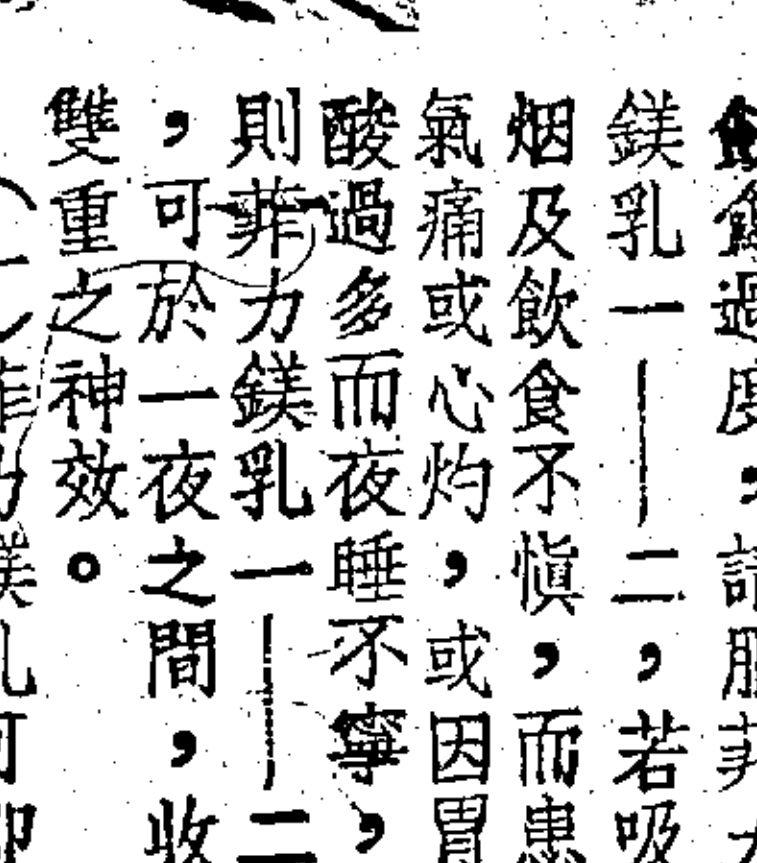 飲過度，請服菲
鎂乳一——二，若吸
烟及飲食不慎，而患
氣痛或心灼，或因胃
酸過多而夜睡不寧，
則菲力鎂乳一——二
，可於一夜之間，收
雙重之神效。